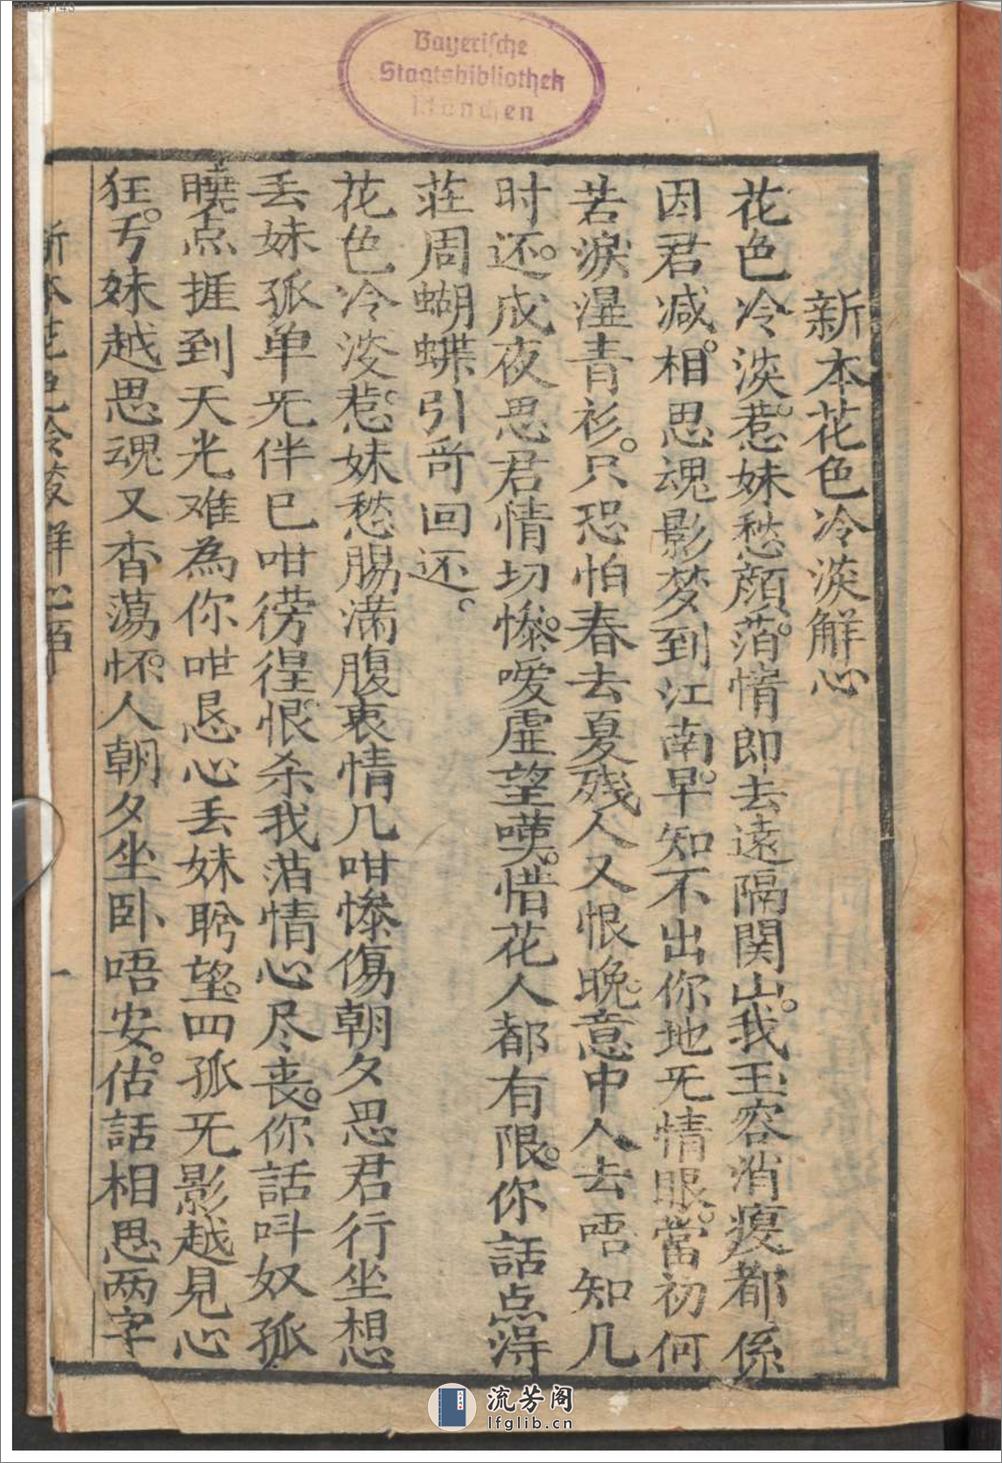 Bayerische
Staatsbibliothek
München
新本花色冷淡解心
花色冷淡。惹妹愁顔。萡情郎去遠隔関山。我玉容消瘦都係
因君减。相思魂影梦到江南。早知不出你地旡情眼。當初何
若淚湿青衫。只恐怕春去夏残人又恨晚。意中人去唔知几
时还。成夜思君情切惨。嗳虚望嘆。惜花人都有限。你話点淂
荘周蝴蝶引哥回还。
花色冷淡。惹妹愁腸满腹衷情几咁惨傷朝夕思君行坐想
丢妹孤单旡伴巳咁徬徨。恨杀我萡情心尽丧。你話呌奴孤
曉点捱到天光难為你咁忍心丢妹盻望。四孤旡影越見心
狂。亐妹越思魂又杳蕩。怀人朝夕坐卧唔安。估話相思两字
新本花色冷淡解心
一
流芳阁
lfglib.cn